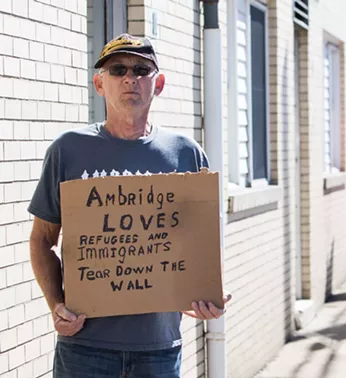 AMBRIDGE
LOVES
REFUGEES AND
IMMIGRANTS
TEAR DOWN THE
WALL